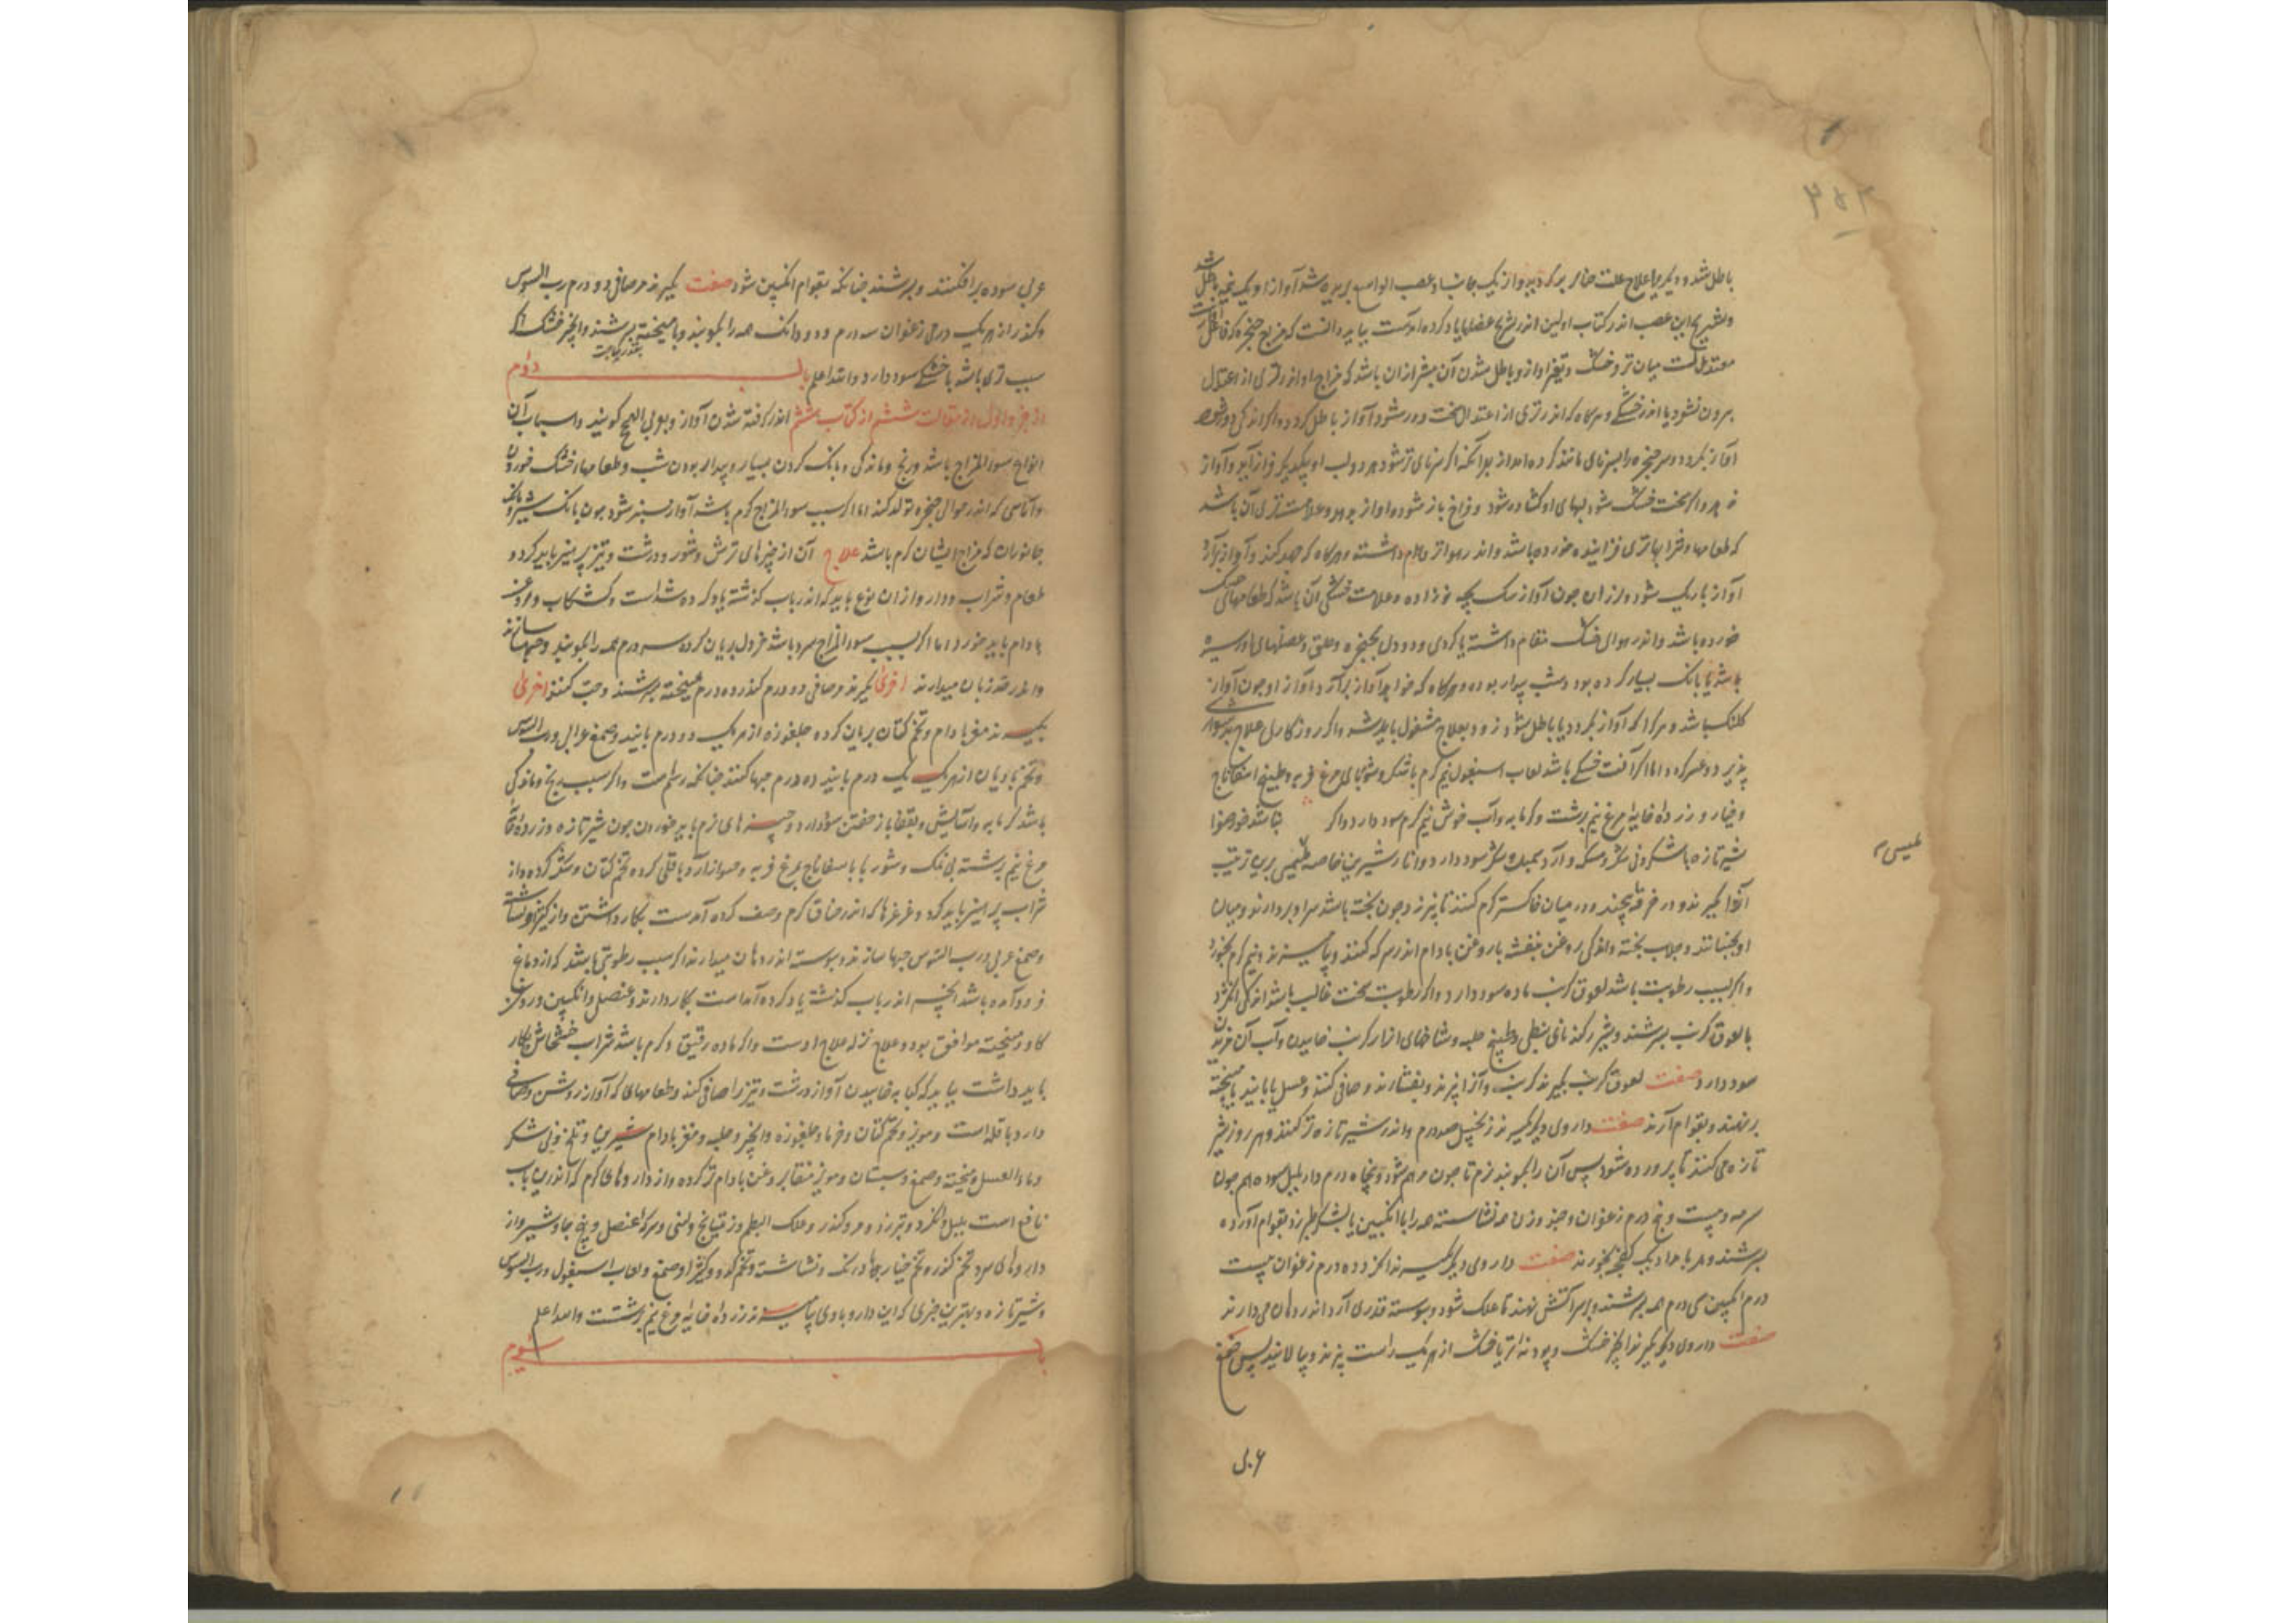 باطل شد و دیگر را علاج علت خنازیر بود کرد ببرید و از یک جانب او عصب الراجع بریده شد آواز او یک نیمه باطل شد
و تشریح این عصب اندر کتاب اولین اندر تشریح عضلها یاد کرده آمدست بباید دانست که مزاج حنجره
معتدلست میان تر و خشک و تغیر آواز و باطل شدن آن بیشتر ازان باشد که مزاج او از تری از اعتدال
بیرون شود یا اندر خشکی و هرگاه که اندر تری از اعتدال سخت دور شود آواز باطل گردد و اگر اندکی دور شود
آواز بگردد و سر حنجره را بسرنای مانند کرده اند از بهر آنکه اگر سرنای تر شود هر دو لب او بیکدیگر فراز آید و آواز
ندهد و اگر سخت خشک شود لبهای او گشاده شود و فراخ باز شود و آواز ندهد و علامت تری آن باشد
که طعامها و شرابها تری فزاینده خورده باشد و اندر هواتر مقام داشته و هرگاه که جهد کند و آواز برآرد
آواز باریک شود و لرزان چون آواز سک بچه نوزاده و علامت خشکی آن باشد که طعامهای خشک
خورده باشد و اندر هوای خشک مقام داشته یا گردی و دودی بحنجره و حلق و عضلهای او رسیده
باشد یا بانک بسیار کرده بود و شب بیدار بوده و هرگاه که خواهد آواز برآرد آواز او چون آواز
کلنک باشد و هر کرا که آواز بگردد یا باطل شود زود بعلاج مشغول باید شد و اگر روزگار سال علاج دشوار
پذیرد و عسر گردد اما اگر آفت خشکی باشد لعاب اسبغول نیم گرم با شکر و شوربای مرغ فربه و طبیخ اسفاناج
و خیار و زرده خایه مرغ نیم برشت و گرمابه و آب خوش نیم گرم سود دارد و اگر نباشد خود همواره
شیر تازه با شکر و نی شکر و مسکه و آرد بمیده شکر سود دارد و انار شیرین خاصه ملیسی برین ترتیب
آنرا بگیرند و در خرقه پیچند و در میان خاکستر گرم کنند تا بپزند و چون پخته باشد سر او بردارند و میان
او بجنبانند و جلاب پخته و اندکی روغن بنفشه یا روغن بادام اندر سرکه کنند و بیامیزند و نیم گرم بخورد
و اگر بسبب رطوبت باشد لعوق کرنب ماده سود دارد و اگر رطوبت سخت غالب باشد اندکی انگزد
با لعوق کرنب بسرشند و بیشتر گندنای نبطی و طبیخ حلبه و شاخهای تر از کرنب خاییدن و آب آن فروبردن
سود دارد صفت لعوق کرنب بگیرند کرنب و آنرا بپزند و بفشارند و صافی کنند و عسل یا پانید بامیخته
برنهند و بقوام آرند صفت داروی دیگر بگیرند زنجبیل صد درم و اندر شیر تازه تر کنند و هر روز شیر
تازه می کنند تا پرورده شود پس آن را بکوبند نرم تا چون مرهم شود و پنجاه درم دارفلفل سوده هم چون
سرمه و بیست و پنج درم زعفران و چند وزن همه نشاسته همه را با انگبین یا بشکر طبرزد بقوام آورده
بسرشند و هر بامداد یک کفجه بخورند صفت داروی دیگر بگیرند انگزد ده درم زعفران بیست
درم انگبین سی درم همه بسرشند و بر سر آتش نهند تا علک شود و پیوسته قدری آرد اندر دهان می دارند
صفت داروی دیگر بگیرند انجیر خشک و پودنه تر یا خشک از هر یک راست بپزند و بپالایند پس صمغ
عربی
ملیسی
عربی سوده برافکنند و بسرشند چنانکه بقوام انگبین شود صفت بگیرند مر صافی دو درم رب السوس
و کندر از هر یک درمی زعفران سه درم و دو دانک همه را بکوبند و با میبخته بسرشند و انجیر خشک اگر
بقدر حاجت
سبب تری باشد یا خشکی سود دارد والله اعلم باب دوم
از جزو اول از مقالت ششم از کتاب ششم اندر گرفته شدن آواز و بعربی البحح گویند و اسباب آن
انواع سوء المزاج باشد و رنج و ماندگی و بانک کردن بسیار و بیدار بودن شب و طعامها خشک خوردن
و آماسی که اندر حوالی حنجره تولد کند اما اگر سبب سوء المزاج گرم باشد آواز سبنر شود چون بانک شیر و مانند
جانوران که مزاج ایشان گرم باشد علاج آن از چیزهای ترش و شور و درشت و تیز پرهیز باید کرد و
طعام و شراب و دارو ازان نوع باید که اندر باب گذشته یاد کرده شدست و کشکاب و روغن
بادام باید خورد اما اگر بسبب سوء المزاج سرد باشد خردل بریان کرده سه درم همه را بکوبند و حبها سازند
و اندر زیر زبان میدارند اخری بگیرند مر صافی دو درم کندر ده درم بمیبخته بسرشند و حب کنند اخری
بگیرند مغز بادام و تخم کتان بریان کرده جلغوزه از هر یک دو درم پانید و صمغ عرابی و رب السوس
و تخم بادیان از هر یک یک درم پانید ده درم حبها کنند چنانکه رسمست و اگر سبب رنج و ماندگی
باشد گرمابه و آسایش و بقفا باز خفتن سود دارد و چیزهای نرم باید خوردن چون شیر تازه و زرده خایه
مرغ نیم برشته بی نمک و شوربا با اسفاناج و مرغ فربه و حسوا از آرد باقلی کرده تخم کتان و شکر کرده و از
شراب پرهیز باید کرد و غرغرها که اندر خناق گرم وصف کرده آمدست بکار داشتن و از کتیرا و نشاسته
و صمغ عربی و رب السوس حبها سازند و پیوسته اندر دهان میدارند اگر سبب رطوبتی باشد که از دماغ
فرود آمده باشد آنچه اندر باب گذشته یاد کرده آمدست بکار دارند و عنصل و انگبین و روغن
گاو و میبخته موافق بود و علاج نزله علاج اوست و اگر ماده رقیق و گرم باشد شراب خشخاش بکار
باید داشت بباید که کبابه خاییدن آواز درشت و تیز را صافی کند و طعامهای که آواز روشن و صافی
دارد باقله است و مویز و تخم کتان و خرما و جلغوزه و انجیر و حلبه و مغز بادام شیرین و تلخ و نی شکر
و ماء العسل و میبخته و صمغ و سبستان و مویز منقا بروغن بادام تر کرده و از داروهای گرم که اندرین باب
نافع است پلپل و انگزد و تبرزد و مر و کندر و علک البطم و زتیانج و لبنی و سرکه عنصل و بیخ جاوشیر و از
داروهای سرد تخم گوز و تخم خیار بادرنک و نشاسته و تخم کدو و کتیرا و صمغ و لعاب اسبغول و رب السوس
و شیر تازه و بهترین چیزی که این دارو باوی بیامیزند زرده خایه مرغ نیم برشتست والله اعلم
باب سوم